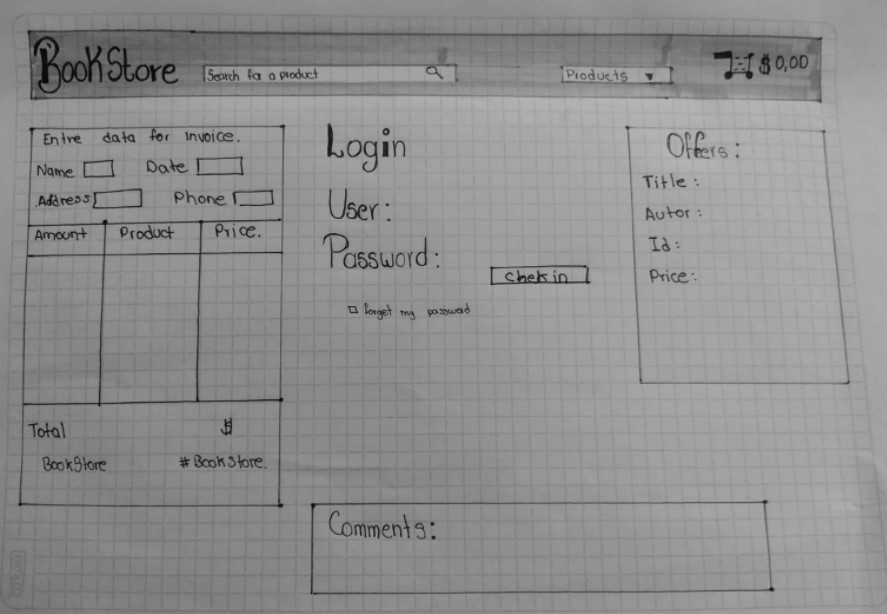 BookStore
Search for a product
Products
$0,00
Entre data for invoice.
Name Date
Address Phone
Amount Product Price.
Total $
BookStore #BookStore.
Login
User:
Password:
Chek in
forget my password
Offers:
Title:
Autor:
Id:
Price:
Comments: